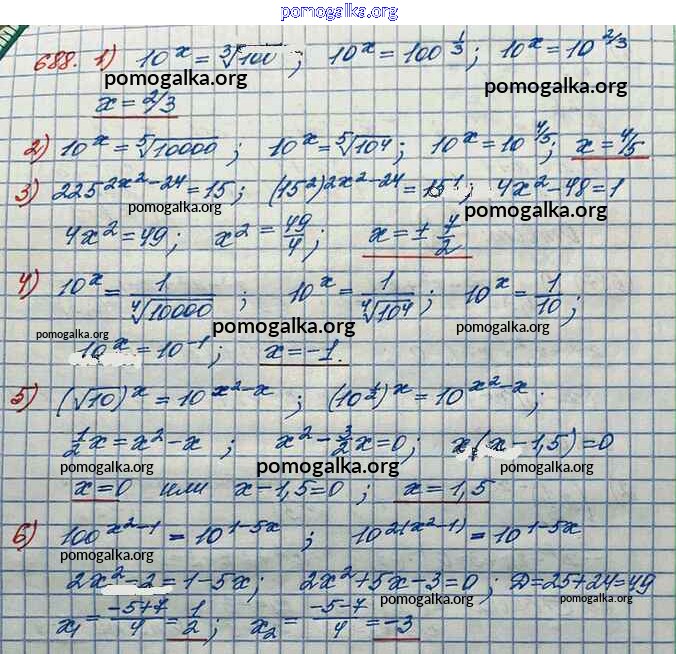 pomogalka.org
688. 1) 10^x = ∛100 ; 10^x = 100^(1/3) ; 10^x = 10^(2/3)
pomogalka.org pomogalka.org
x = 2/3
2) 10^x = ⁵√10000 ; 10^x = ⁵√10⁴ ; 10^x = 10^(4/5) ; x = 4/5
3) 225^(2x²-24) = 15 ; (15²)^(2x²-24) = 15¹ ; 4x² - 48 = 1
pomogalka.org pomogalka.org
4x² = 49 ; x² = 49/4 ; x = ± 7/2
4) 10^x = 1/⁴√10000 ; 10^x = 1/⁴√10⁴ ; 10^x = 1/10 ;
pomogalka.org pomogalka.org pomogalka.org
10^x = 10^(-1) ; x = -1.
5) (√10)^x = 10^(x²-x) ; (10^(1/2))^x = 10^(x²-x) ;
1/2 x = x² - x ; x² - 3/2 x = 0 ; x (x - 1,5) = 0
pomogalka.org pomogalka.org pomogalka.org
x = 0 или x - 1,5 = 0 ; x = 1,5
6) 100^(x²-1) = 10^(1-5x) ; 10^(2(x²-1)) = 10^(1-5x)
pomogalka.org
2x² - 2 = 1 - 5x ; 2x² + 5x - 3 = 0 ; D = 25 + 24 = 49
pomogalka.org pomogalka.org
x₁ = (-5+7)/4 = 1/2 ; x₂ = (-5-7)/4 = -3